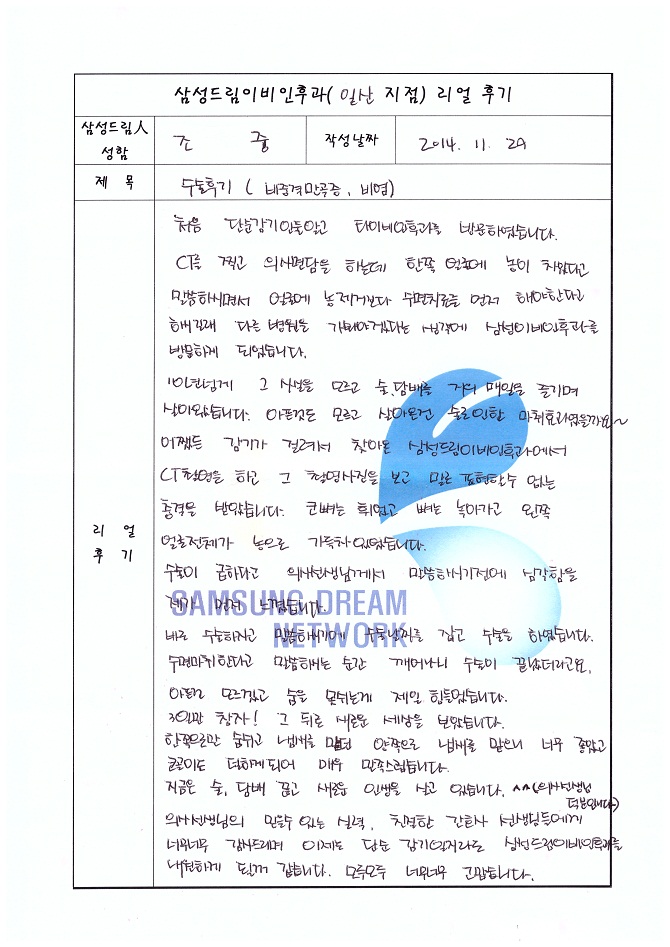 삼성드림이비인후과( 일산 지점) 리얼 후기
삼성드림人 성함
조 중
작성날짜
2014. 11. 29
제 목
수술후기 ( 비중격만곡증, 비염)
리 얼
후 기
처음 단순감기인줄알고 타이비인후과를 방문하였습니다.
CT를 찍고 의사면담을 하는데 한쪽 얼굴에 농이 차있다고
말씀하시면서 얼굴에 농제거보다 수면치료를 먼저 해야한다고
하시길래 다른 병원을 가봐야겠다는 생각에 삼성이비인후과를
방문하게 되었습니다.
10년넘게 그 사실을 모르고 술,담배를 거의 매일을 즐기며
살아왔습니다. 아픈것도 모르고 살아온건 술로인한 마취효과였을까요~
어쨌든 감기가 걸려서 찾아온 삼성드림이비인후과에서
CT촬영을 하고 그 촬영사진을 보고 말로 표현할수 없는
충격을 받았습니다. 코뼈는 휘었고 뼈는 녹아가고 왼쪽
얼굴전체가 농으로 가득차있었습니다.
수술이 급하다고 의사선생님께서 말씀하시기전에 심각함을
제가 먼저 느꼈습니다.
바로 수술하자고 말씀하시기에 수술날짜를 잡고 수술을 하였습니다.
수면마취한다고 말씀하시는 순간 깨어나니 수술이 끝났더라고요.
아픈건 모르겠고 숨을 못쉬는게 제일 힘들었습니다.
3일만 참자! 그 뒤로 새로운 세상을 보았습니다.
한쪽으로만 숨쉬고 냄새를 맡던 양쪽으로 냄새를 맡으니 너무 좋았고
코골이도 덜하게되어 매우 만족스럽습니다.
지금은 술, 담배 끊고 새로운 인생을 살고 있습니다. ^^(의사선생님
덕분입니다)
의사선생님의 믿을수 있는 실력, 친절한 간호사 선생님들에게
너무너무 감사드리며 이제는 단순 감기일지라도 삼성드림이비인후과를
내원하게 될것 같습니다. 모두모두 너무너무 고맙습니다.
SAMSUNG DREAM
NETWORK